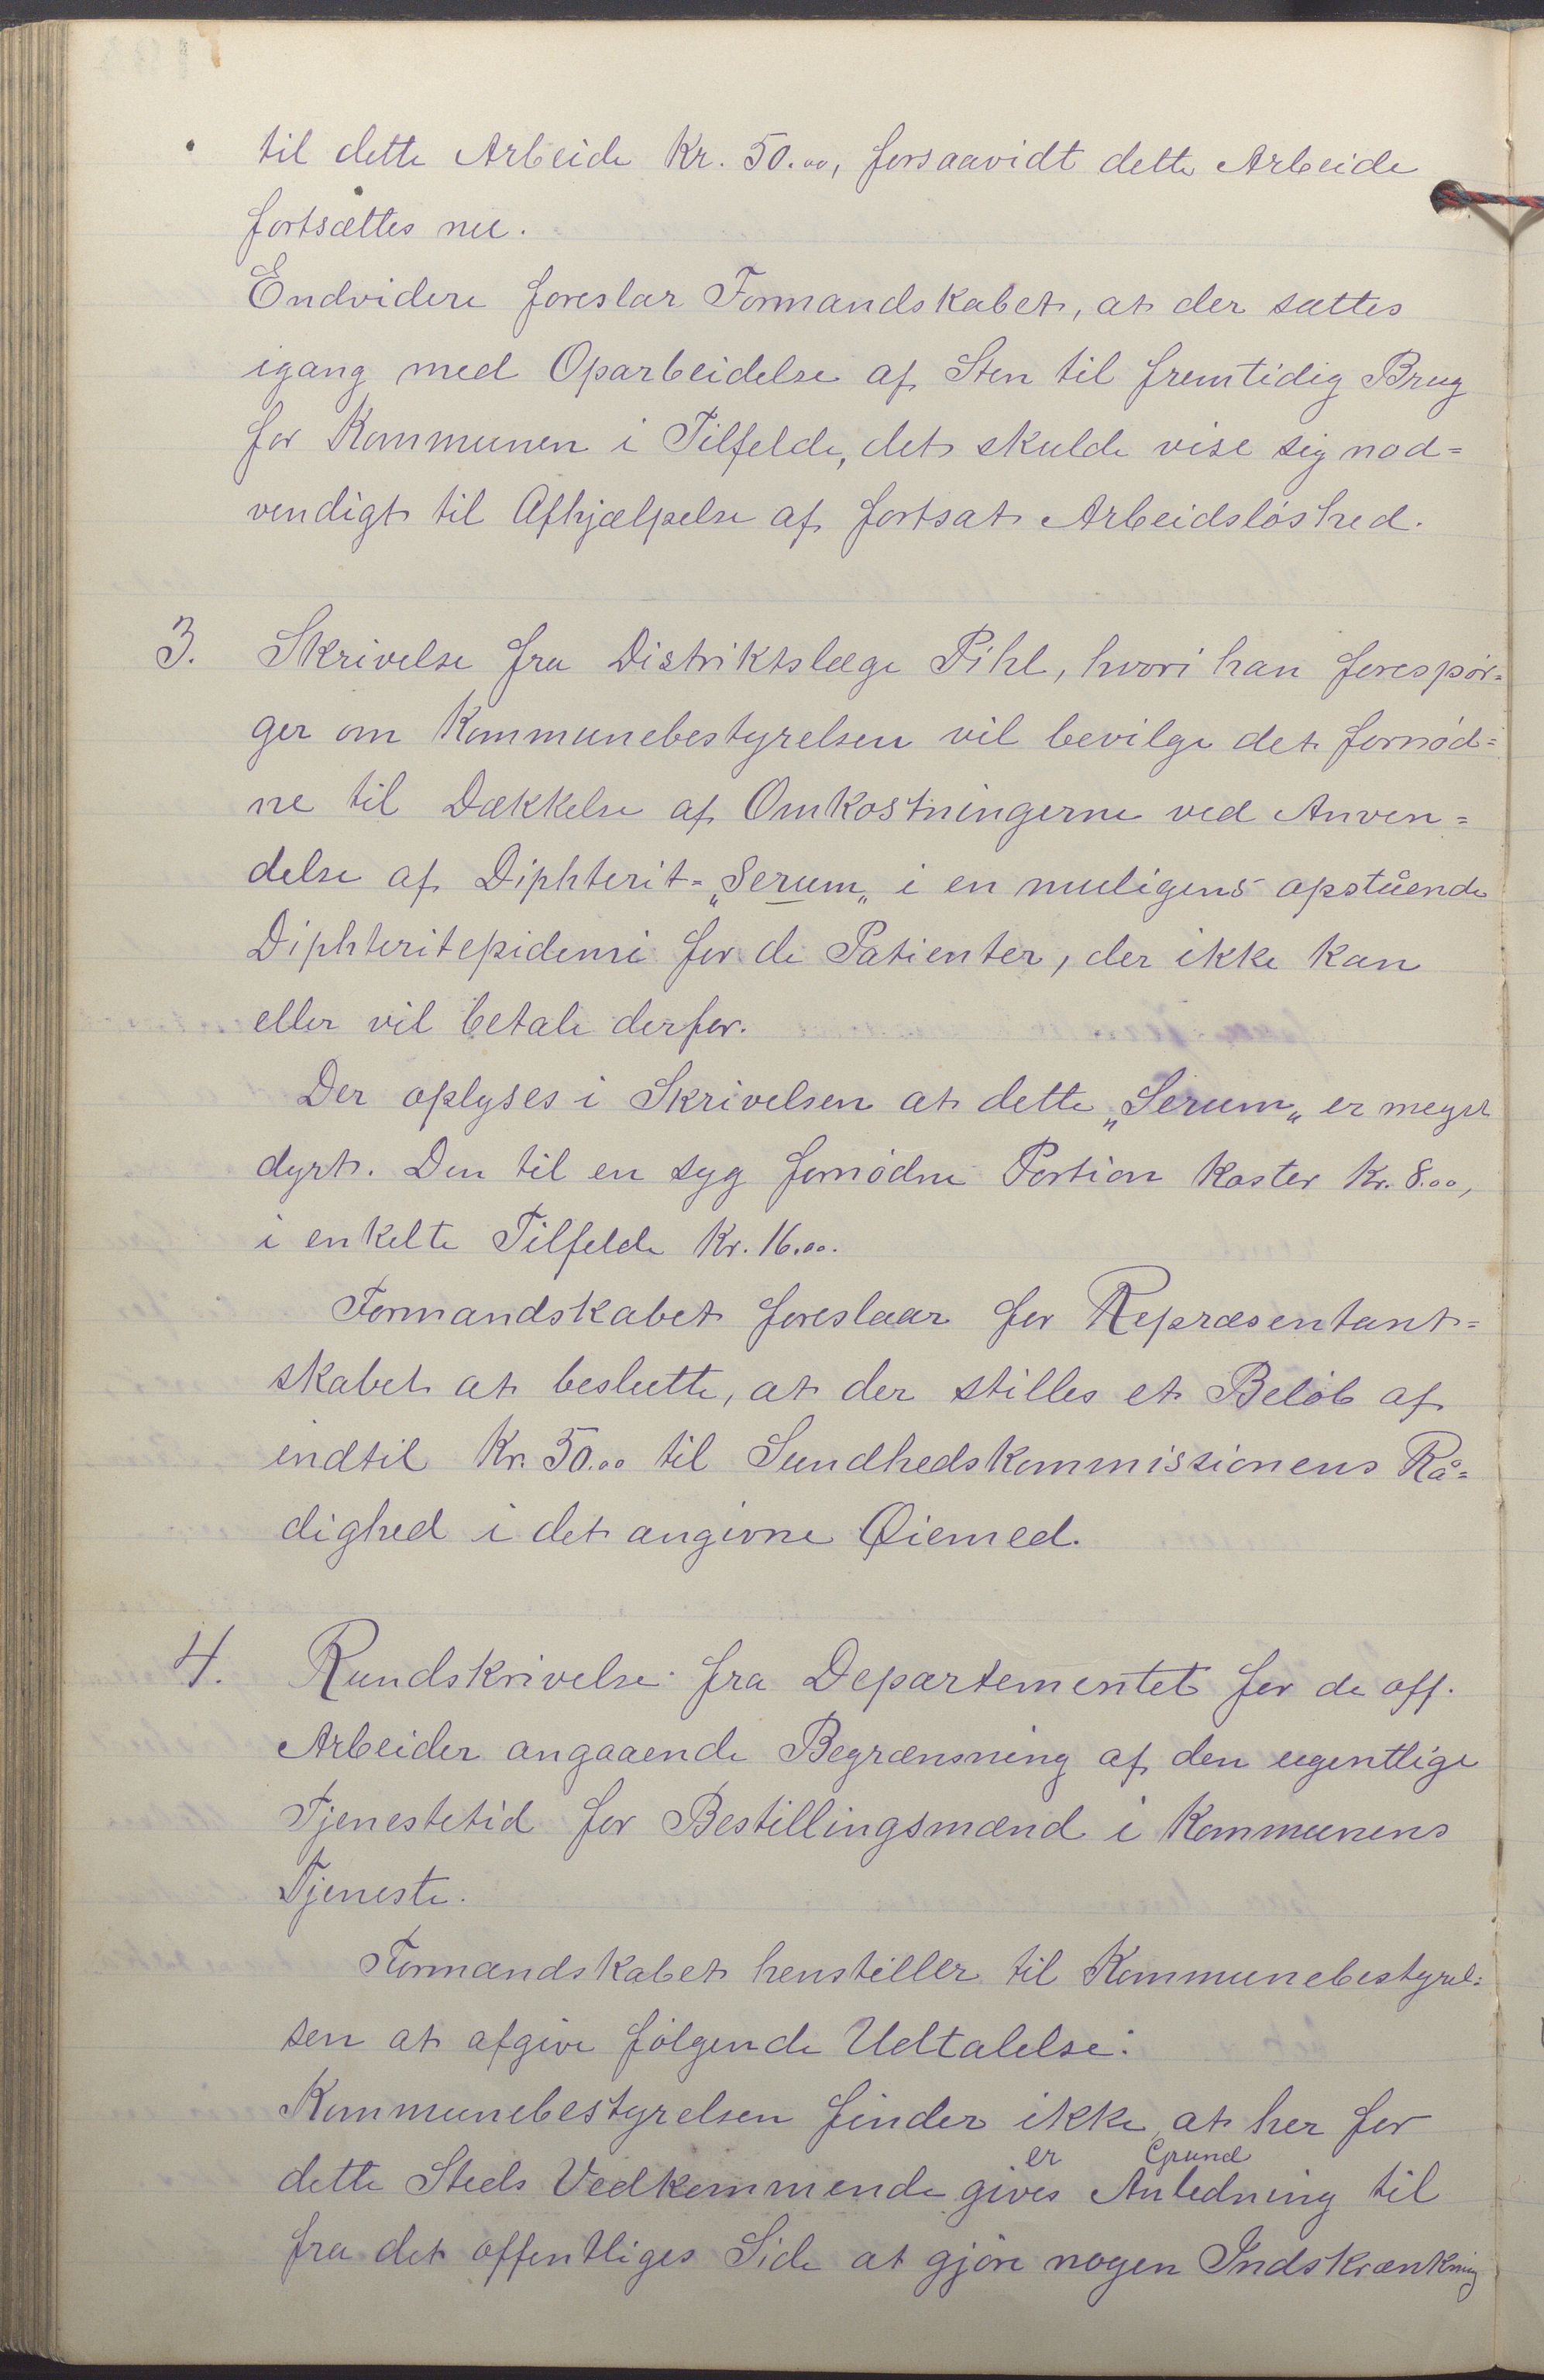 til dette Arbeide Kr. 50.00, forsaavidt dette Arbeide
fortsættes nu.
Endvidere foreslar Formandskabet, at der sættes
igang med Oparbeidelse af Sten til fremtidig Brug
for Kommunen i Tilfelde, det skulde vise sig nød=
vendigt til Afhjælpelse af fortsat Arbeidsløshed.
3. Skrivelse fra Distriktslæge Pihl, hvori han forespør=
ger om Kommunebestyrelsen vil bevilge det fornød=
ne til Dækkelse af Omkostningerne ved Anven=
delse af Diphterit= „Serum„ i en muligens opstående
Diphteritepidemi for de Patienter, der ikke kan
eller vil betale derfor.
Der oplyses i Skrivelsen at dette „Serum„ er meget
dyrt. Den til en syg fornødne Portion koster Kr. 8.00,
i enkelte Tilfelde Kr. 16.00.
Formandskabet foreslaar for Repræsentant=
skabet at beslutte, at der stilles et Beløb af
indtil Kr. 50.00 til Sundhedskommissionens Rå=
dighed i det angivne Øiemed.
4. Rundskrivelse fra Departementet for de off.
Arbeider angaaende Begrænsning af den egentlige
Tjenestetid for Bestillingsmænd i Kommunens
Tjeneste.
Formandskabet henstiller til Kommunebestyrel=
sen at afgive følgende Udtalelse:
Kommunebestyrelsen finder ikke, at her for
er Grund
dette Steds Vedkommende gives Anledning til
fra det offentliges Side at gjøre nogen Indskrænkning